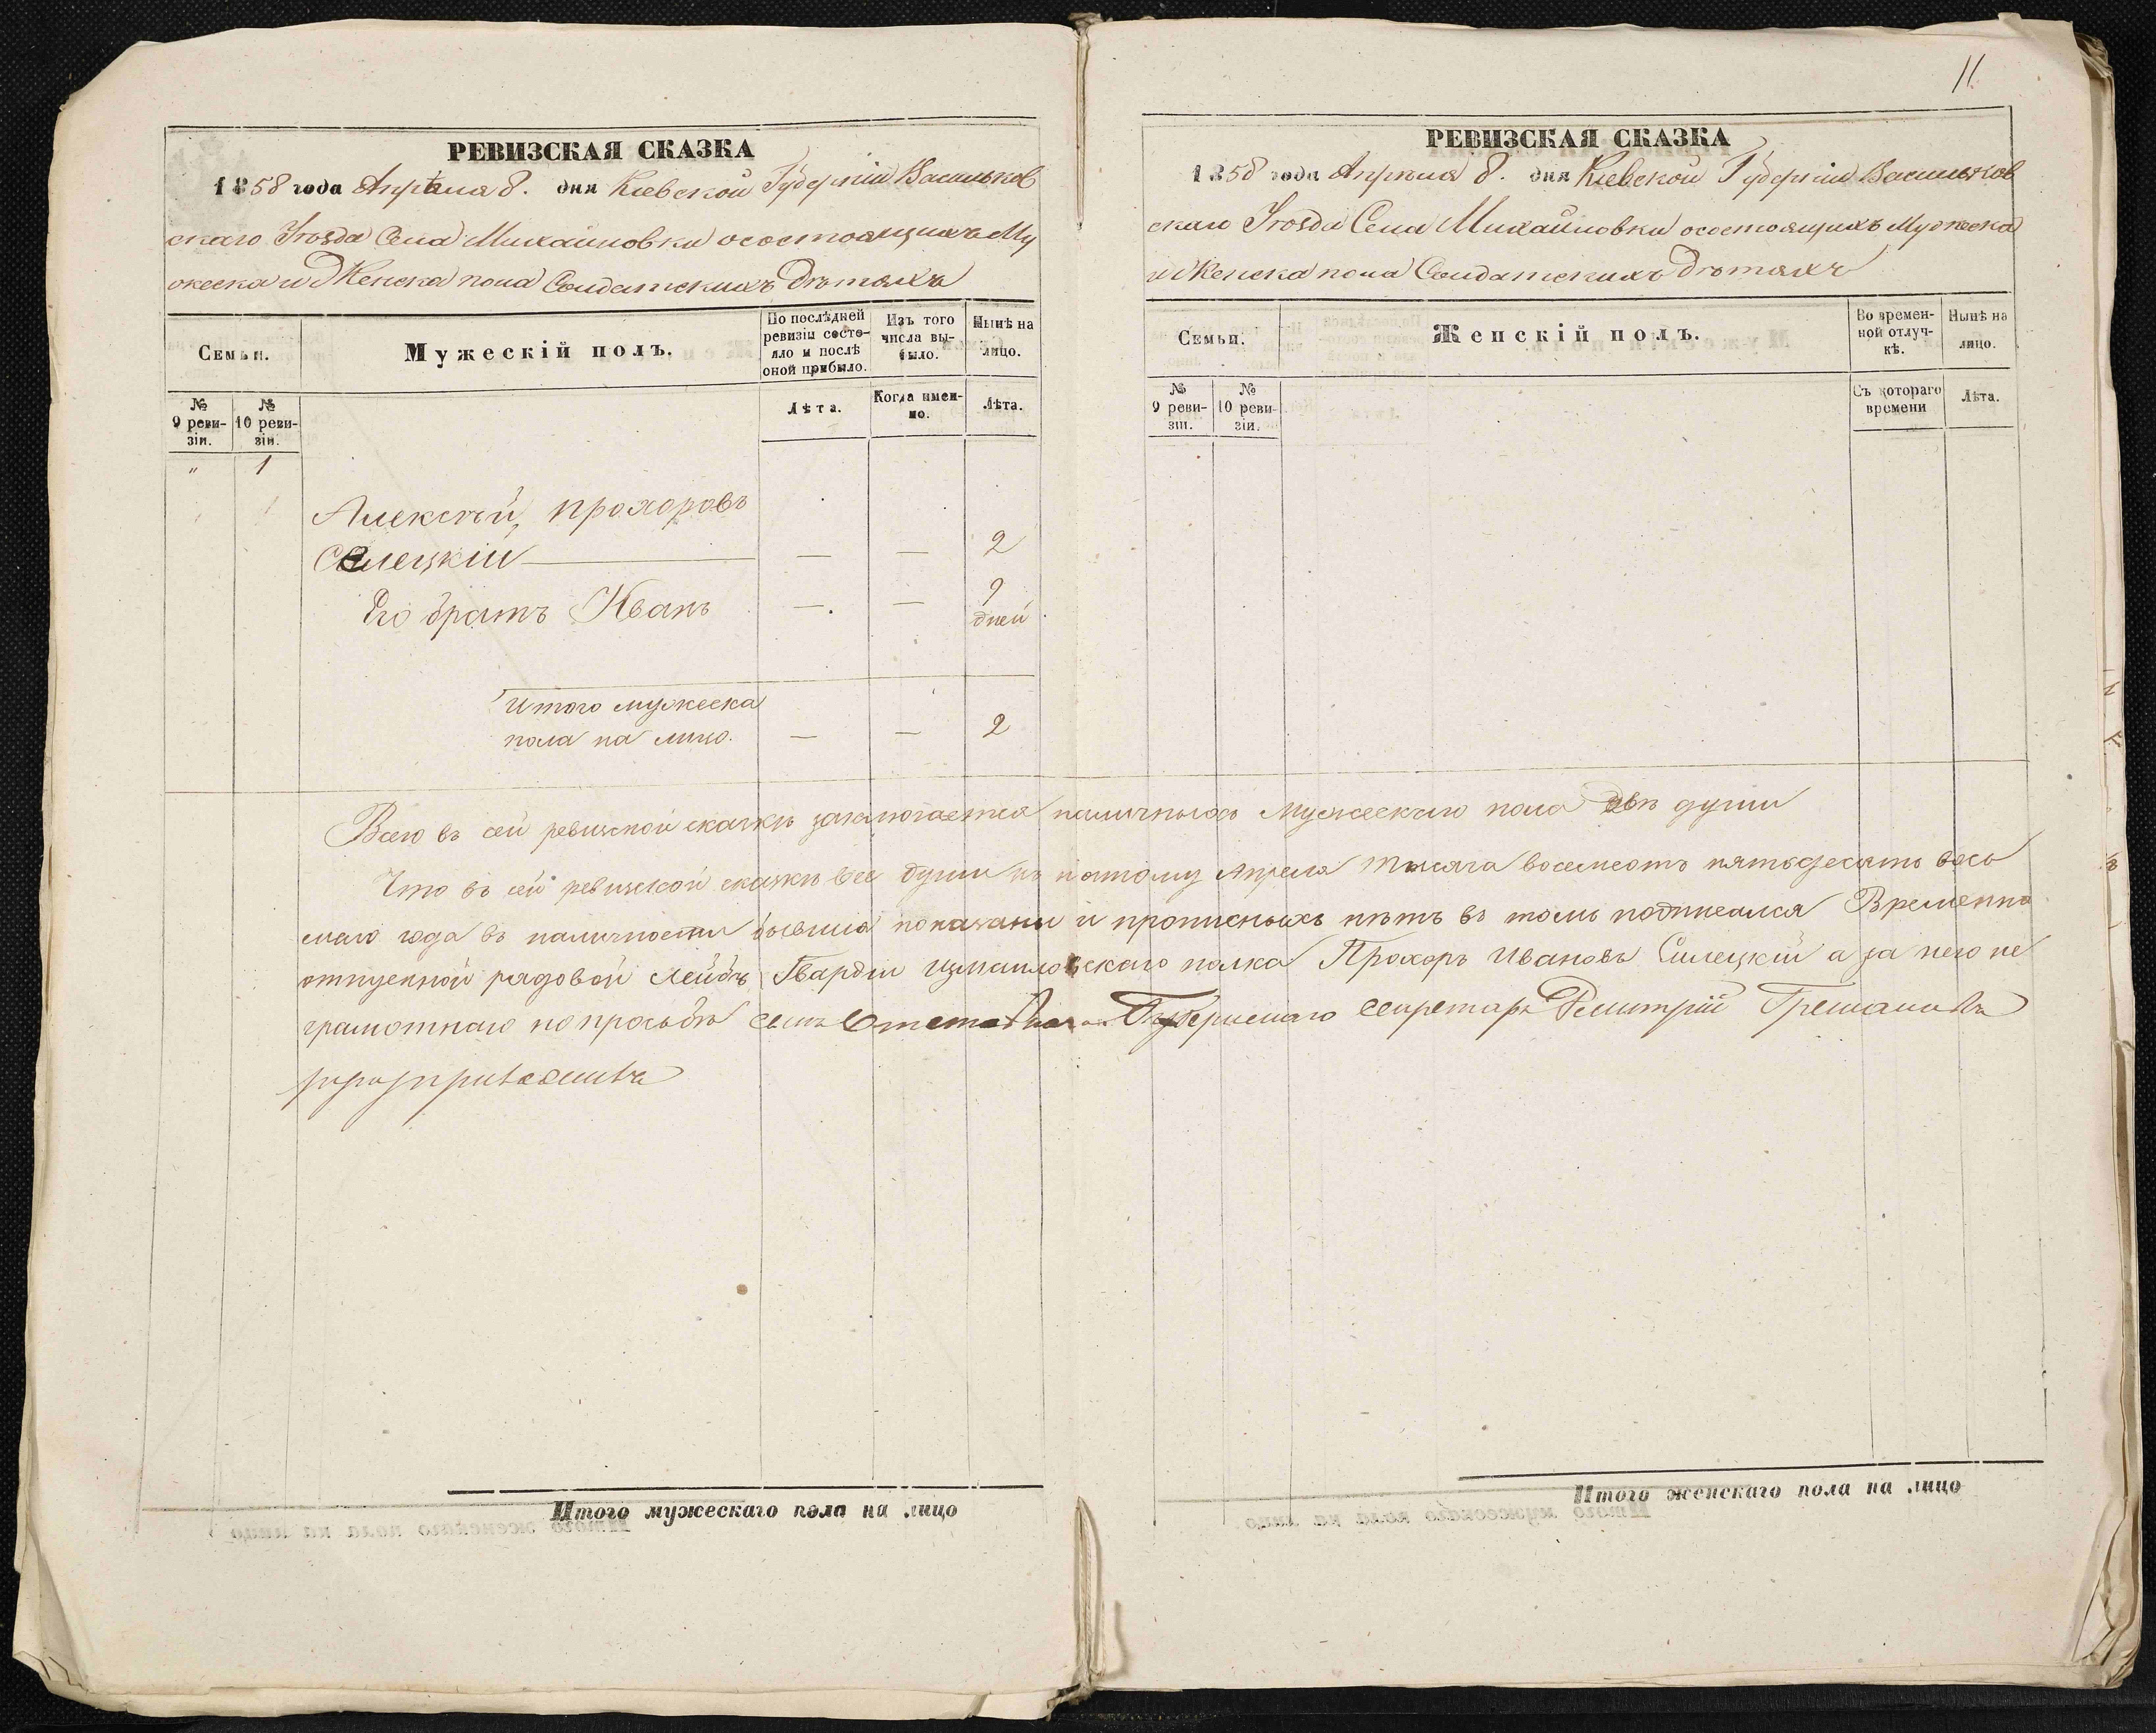 11
РЕВИЗСКАЯ СКАЗКА
1858 года Апрѣля 8. дня Кіевской Губерніи Васильков
скаго Уѣзда Села Михайловки осостоящихъ Му
жеска и Женска пола Солдатскихъ Дѣтяхъ
Семьи.
Мужескій полъ.
По послѣдней ревизіи состояло и послѣ оной прибыло.
Изъ того числа выбыло.
Нынѣ на лицо.
№ 9 ревизіи.
№ 10 ревизіи.
Лѣта.
Когда именно.
Лѣта.
" 1
Алексѣй Прохоровъ
Селецкій — — 2
Его братъ Иванъ — — 9 дней
Итого мужеска
пола на лицо. — — 2
РЕВИЗСКАЯ СКАЗКА
1858 года Апрѣля 8. дня Кіевской Губерніи Васильков
скаго Уѣзда Села Михайловки осостоящихъ Мужеска
и Женска пола Солдатскихъ Дѣтяхъ
Семьи.
Женскій полъ.
Во временной отлучкѣ.
Нынѣ на лицо.
№ 9 ревизіи.
№ 10 ревизіи.
Съ котораго времени
Лѣта.
Всего въ сей ревизской сказкѣ заключается наличныхъ Мужескаго пола двѣ души
Что въ сей ревизской сказкѣ все души къ Апреля тысяча восемсотъ пятьдесятъ вось
маго года въ наличности бывшіе показаны и прописныхъ нѣтъ въ томъ подписался Временно
отпускной рядовой Лейбъ Гвардіи Измайловскаго полка Прохоръ Ивановъ Силецкій а за него не
грамотнаго по просьбѣ Губернскаго Секретаря Дмитрій
Итого мужескаго пола на лицо
Итого женскаго пола на лицо